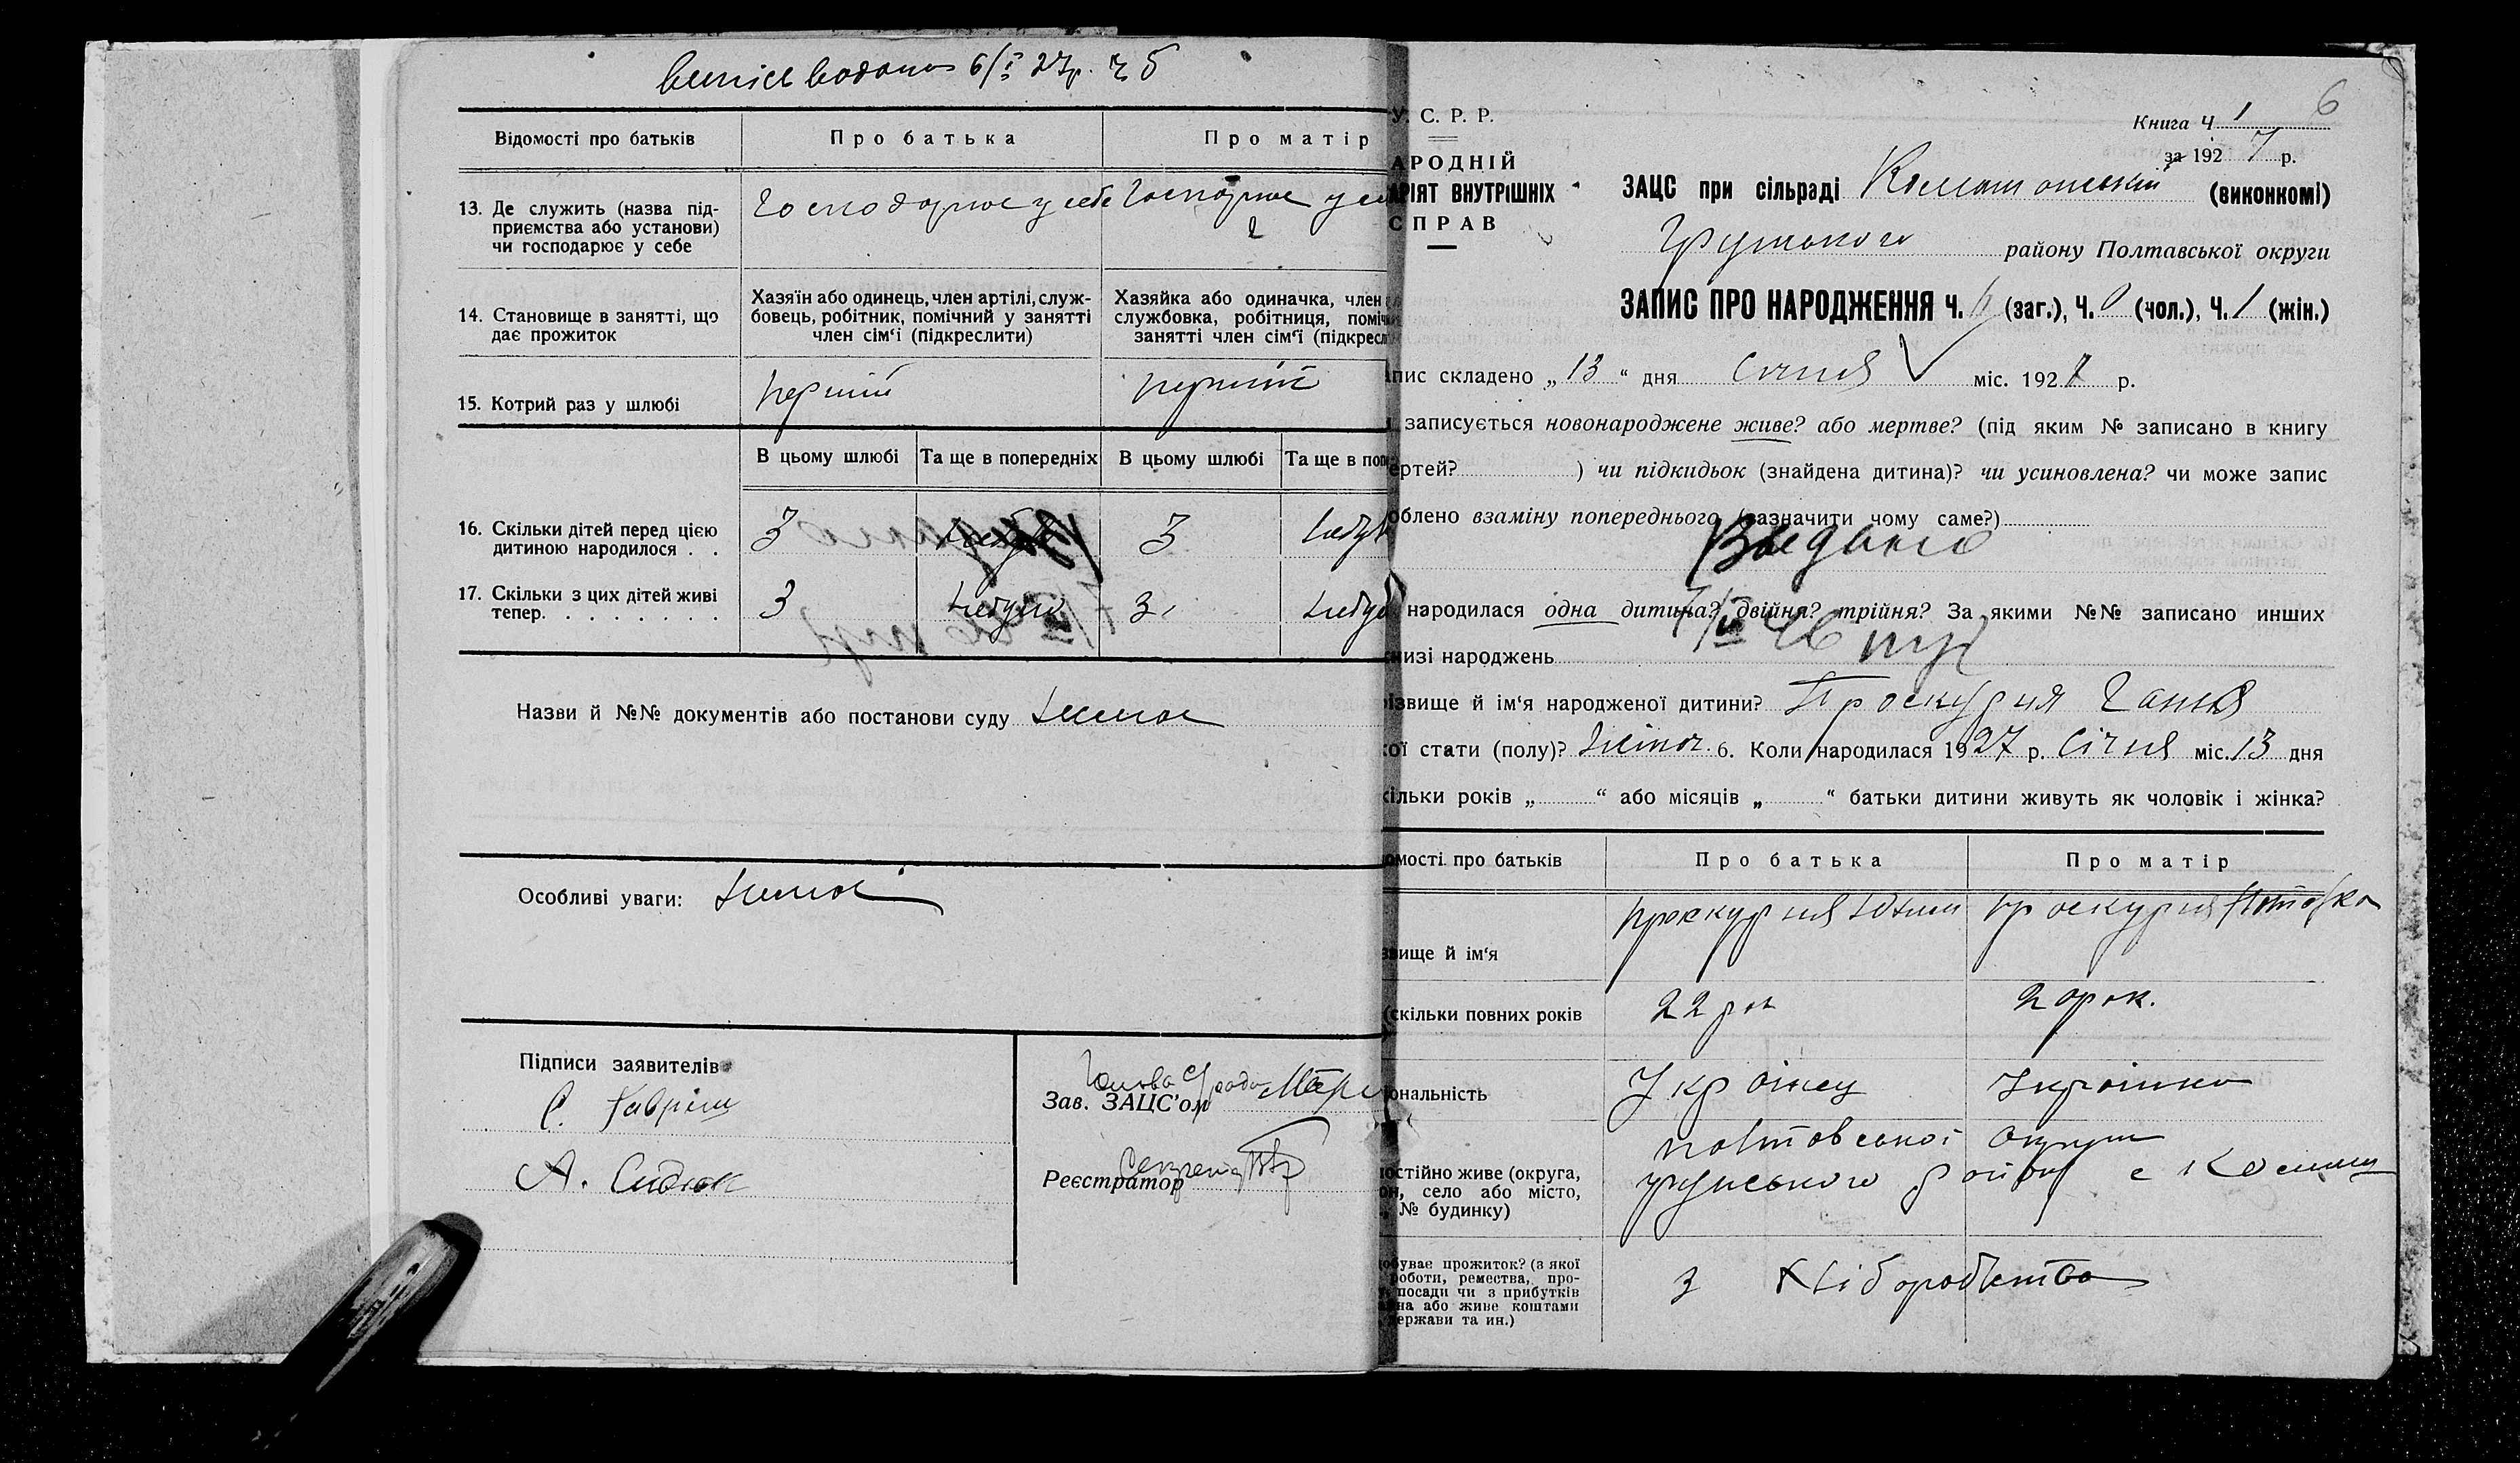 6/I 27р. ч 5
Відомості про батьків
Про батька
Про матір
13. Де служить (назва під-
приємства або установи)
чи господарює у себе
Господарює у себе
Господарює у се
14. Становище в занятті, що
дає прожиток
Хазяїн або одинець, член артілі, служ-
бовець, робітник, помічний у занятті
член сім‘ї (підкреслити)
Хазяйка або одиначка, член
службовка, робітниця, поміч
занятті член сім‘ї (підкресл
15. Котрий раз у шлюбі
перший
перший
В цьому шлюбі
Та ще в попередніх
В цьому шлюбі
Та ще в поп
16. Скільки дітей перед цією
дитиною народилося . .
3
3
17. Скільки з цих дітей живі
тепер. . . . . . . .
3
небуло
3
Назви й №№ документів або постанови суду немає
Особливі уваги: немає
Підписи заявителів
С. Гавріш
А. Сидюк
Голова С/ради
Зав. ЗАЦС’ом
Секретар
Реєстратор
6
У. С. Р. Р.
АРОДНІЙ
АРІЯТ ВНУТРІШНІХ
СПРАВ
Книга Ч 1
за 1927 р.
ЗАЦС при сільраді (виконкомі)
району Полтавської округи
ЗАПИС ПРО НАРОДЖЕННЯ Ч. (заг.), Ч. 0 (чол.), Ч. 1 (жін.)
пис складено „13“ дня Січня міс. 1927 р.
записується новонароджене живе? або мертве? (під яким № записано в книгу
ертей? ) чи підкидьок (знайдена дитина)? чи усиновлена? чи може запис
облено взаміну попереднього (зазначити чому саме?)
Видано
народилася одна дитина? двійня? трійня? За якими №№ записано инших
низі народжень
ізвище й ім‘я народженої дитини? Проскурня Ганна
ої стати (полу)? Жіноч. 6. Коли народилася 1927 р. Січня міс. 13 дня
кільки років „ “ або місяців „ “ батьки дитини живуть як чоловік і жінка?
омості про батьків
Про батька
Про матір
вище й ім‘я
Проскурня Юхим
Проскурня
(скільки повних років
22 рок
20 рок.
ональність
Українец
Українка
остійно живе (округа,
он, село або місто,
№ будинку)
Полтавської Округи
району с
обуває прожиток? (з якої
роботи, ремества, про-
посади чи з прибутків
йна або живе коштами
держави та ин.)
З Хліборобства